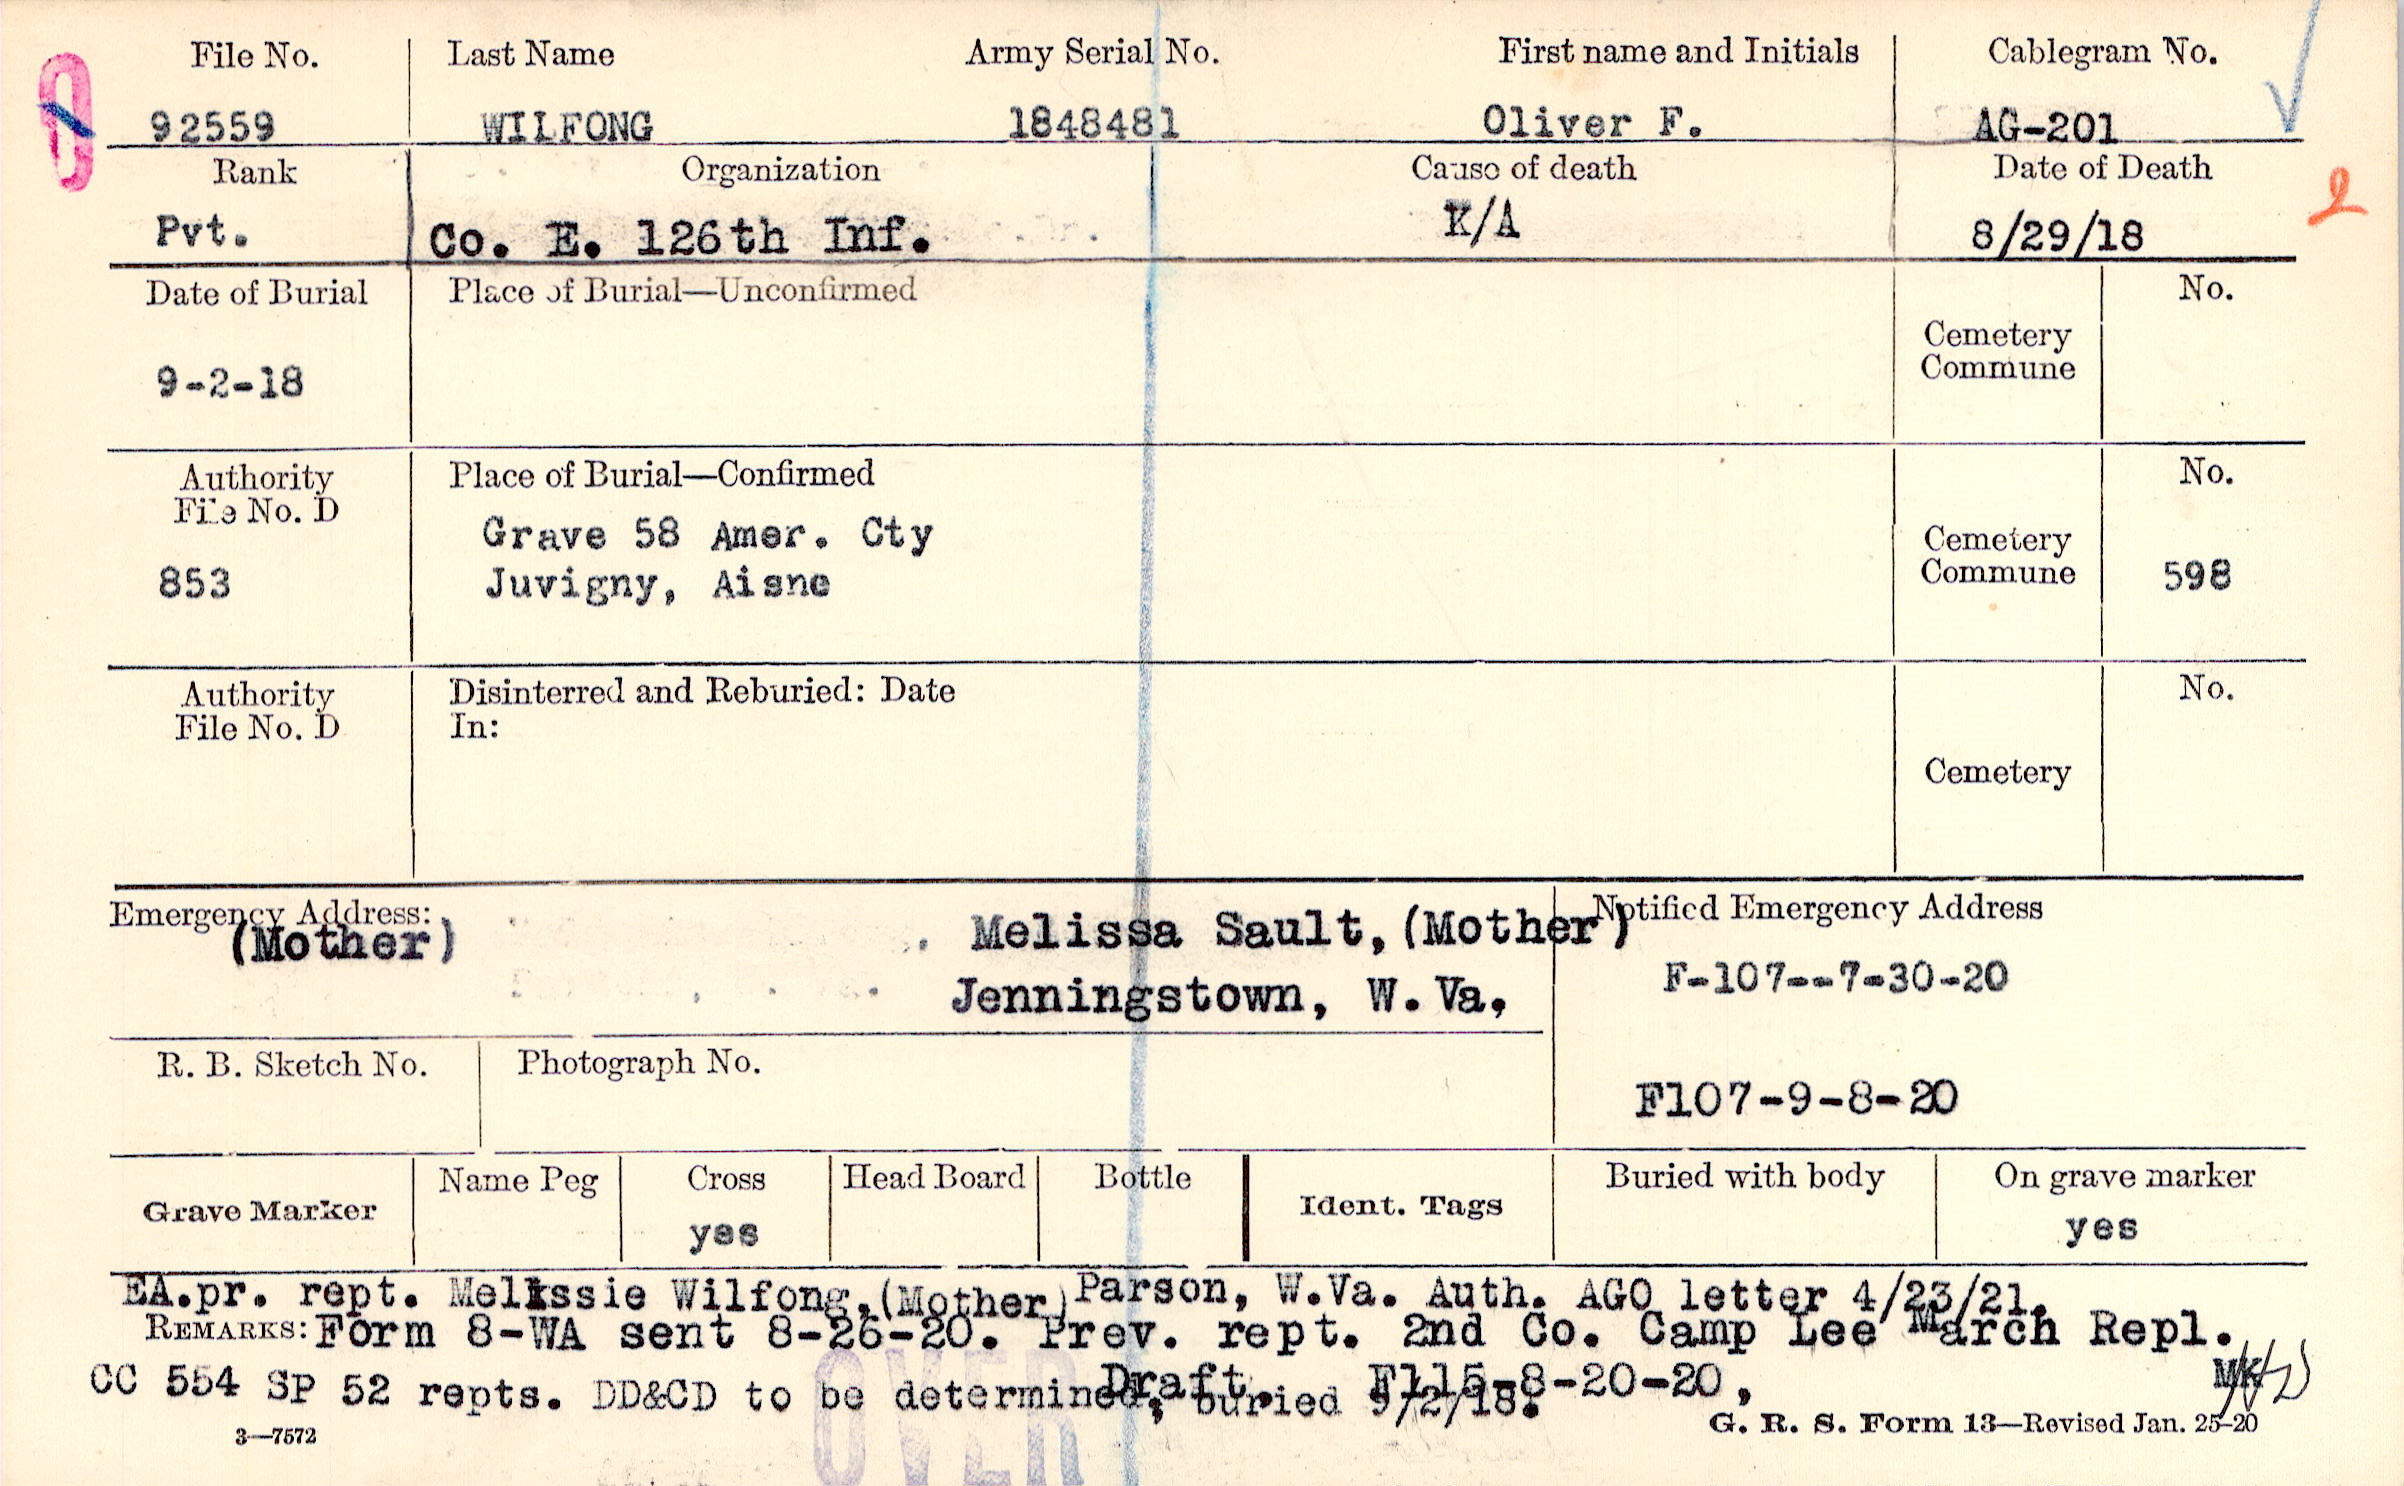 File No. Last Name Army Serial No. First name and Initials Cablegram No.
92559 WILFONG 1848481 Oliver F. AG-201
Rank Organization Cause of death Date of Death
Pvt. Co. E. 126th Inf. K/A 8/29/18
2
Date of Burial Place of Burial—Unconfirmed No.
Cemetery
Commune
9-2-18
Authority Place of Burial—Confirmed No.
File No. D
Grave 58 Amer. Cty Cemetery
853 Juvigny, Aisne Commune 598
Authority Disinterred and Reburied: Date No.
File No. D In:
Cemetery
Emergency Address: Notified Emergency Address
(Mother) Melissa Sault, (Mother)
Jenningstown, W. Va. F-107--7-30-20
R. B. Sketch No. Photograph No.
F107-9-8-20
Grave Marker Name Peg Cross Head Board Bottle Ident. Tags Buried with body On grave marker
yes yes
EA.pr. rept. Melissie Wilfong,(Mother) Parson, W.Va. Auth. AGO letter 4/23/21.
REMARKS: Form 8-WA sent 8-26-20. Prev. rept. 2nd Co. Camp Lee March Repl.
Draft. F115-8-20-20,
CC 554 SP 52 repts. DD&CD to be determined, buried 9/2/18.
OVER
3—7572 G. R. S. Form 13—Revised Jan. 25-20